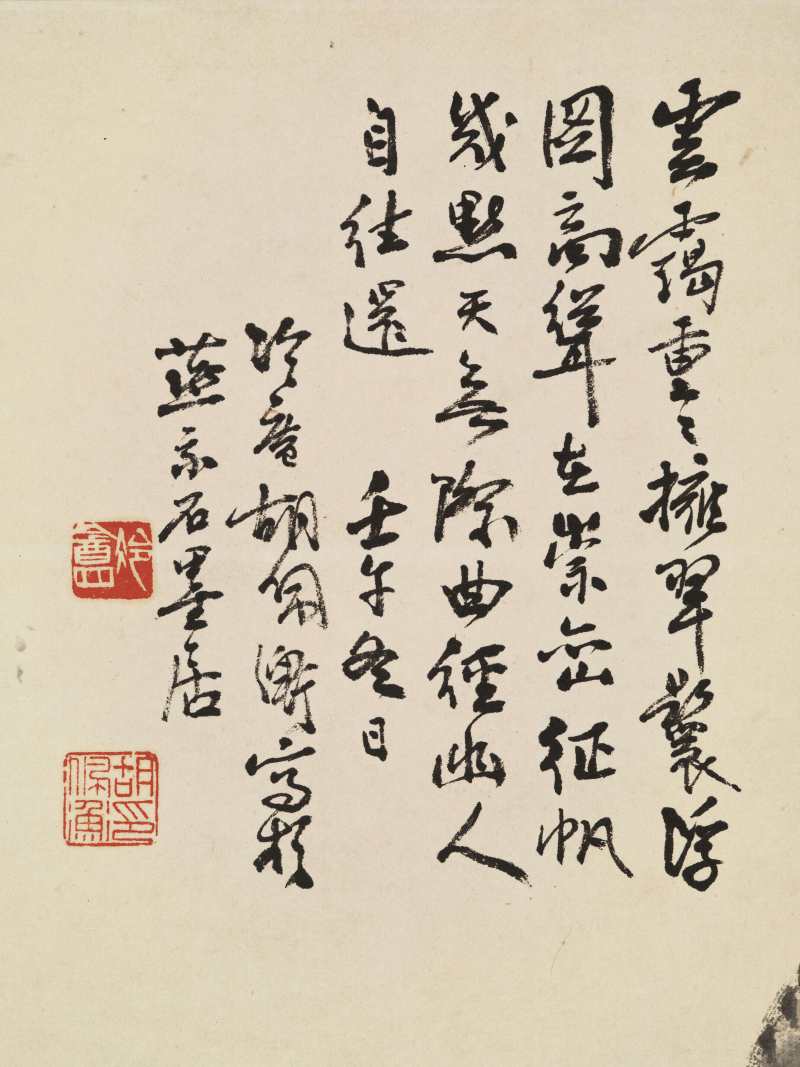 雲靄重〻擁翠鬟浮
圖高聳在崇巒征帆
幾點天無際曲徑幽人
自往還 壬午冬日
冷庵胡佩衡寫於
燕京石墨居
冷盦
胡印佩衡